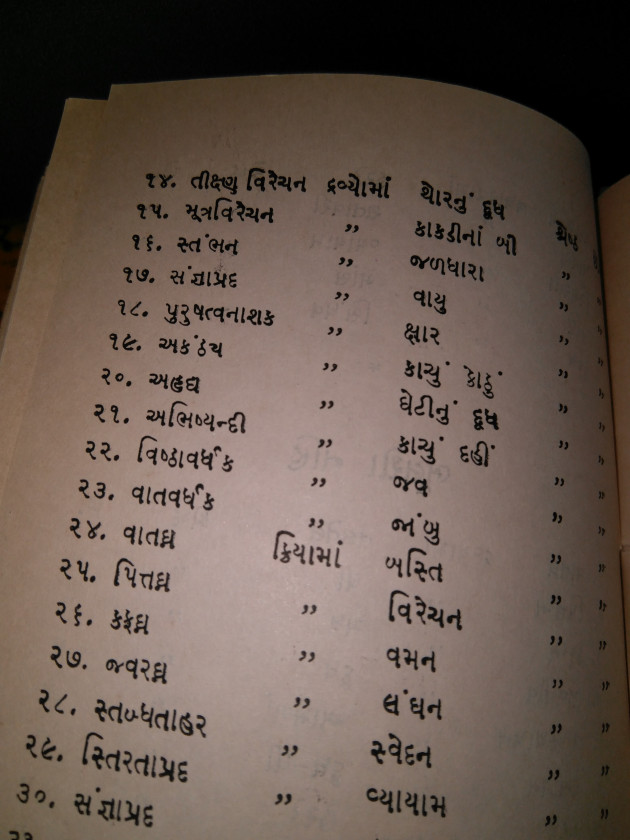 ૧૪. તીક્ષ્ણ વિરેચન દ્રવ્યોમાં થોરનું દૂધ શ્રેષ્ઠ
૧૫. મૂત્રવિરેચન ,, કાકડીનાં બી ,,
૧૬. સ્તંભન ,, જળધારા ,,
૧૭. સંજ્ઞાપ્રદ ,, વાયુ ,,
૧૮. પુરુષત્વનાશક ,, ક્ષાર ,,
૧૯. અકંઠ્ય ,, કાચું કોઠું ,,
૨૦. અહૃદ્ય ,, ઘેટીનું દૂધ ,,
૨૧. અભિષ્યન્દી ,, કાચું દહીં ,,
૨૨. વિષ્ઠાવર્ધક ,, જવ ,,
૨૩. વાતવર્ધક ,, જાંબુ ,,
૨૪. વાતઘ્ન ક્રિયામાં બસ્તિ ,,
૨૫. પિત્તઘ્ન ,, વિરેચન ,,
૨૬. કફઘ્ન ,, વમન ,,
૨૭. જ્વરઘ્ન ,, લંઘન ,,
૨૮. સ્તબ્ધતાહર ,, સ્વેદન ,,
૨૯. સ્તિરતાપ્રદ ,, વ્યાયામ ,,
૩૦. સંજ્ઞાપ્રદ